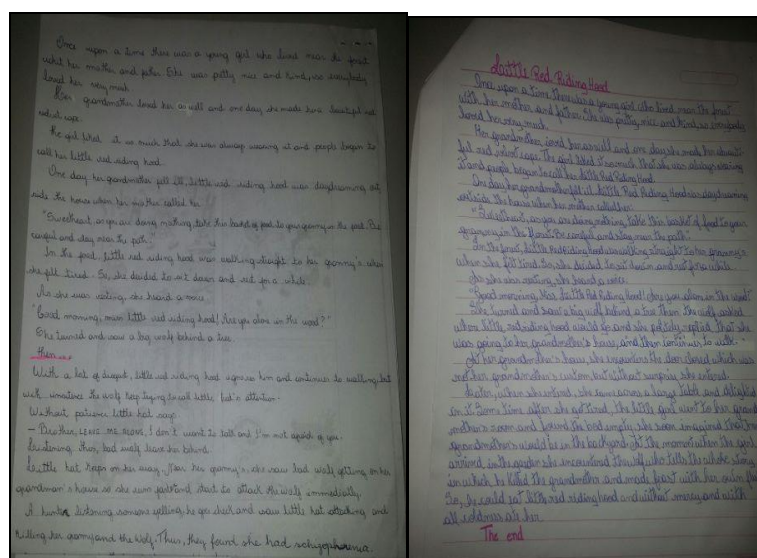 Once upon a time there was a young girl who lived near the forest
with her mother and father. She was pretty nice and kind, so everybody
loved her very much.
Her grandmother loved her as well and one day she made her a beautiful red
velvet cape.
The girl liked it so much that she was always wearing it and people began to
call her little red riding hood.
One day her grandmother fell ill, little red riding hood was daydreaming out
side the house when her mother called her.
"Sweetheart, as you are doing nothing, take this basket of food to your granny in the forest. Be
careful and stay near the path."
In the forest, little red riding hood was walking straight to her granny's when
she felt tired. So, she decided to sit down and rest for a while.
As she was resting, she heard a voice
"Good morning, miss little red riding hood! Are you alone in the wood?"
She turned and saw a big wolf behind a tree.
then...
With a lot of disgust, little red riding hood ignores him and continues to walking, but
the wolf keep trying to call little hat's attention.
Without patience little hat says:
- Brother, LEAVE ME ALONE, I don't want to talk and I'm not afraid of you.
Listening this, bad wolf leave her behind.
Little hat keeps on her way. Near her granny's, she saw bad wolf getting on her
grandmam's house so she runs fast and start to attack the wolf immediately.
A hunter listening someone yelling, he goes check and saw little hat attacking and
killing her granny and the wolf. Thus, they found she had schizophrenia.
Little Red Riding Hood
Once upon a time there was a young girl who lived near the forest
with her mother and father. She was pretty, nice and kind so everybody
loved her very much.
Her grandmother loved her as well and one day she made her a beauti-
ful red velvet cape. The girl liked it so much that she was always wearing
it and people began to call her Little Red Riding Hood.
One day her grandmother fell ill. Little Red Riding Hood was daydreaming
outside the house when her mother called her.
"Sweetheart, as you are doing nothing, take this basket of food to your
granny in the forest. Be careful and stay near the path."
In the forest, little Red Riding Hood was walking straight to her granny's
when she felt tired. So, she decided to sit down and rest for a while.
As she was resting, she heard a voice:
"Good morning, Miss Little Red Riding Hood! Are you alone in the wood?"
She turned and saw a big wolf behind a tree. Then the wolf asked
where little red riding hood would go and she politely replied that she
was going to her grandmother's house, and then continues to walk.
At her grandmother's house, she encounters the door closed which was
not her grandmother's custom, but without surprise she entered.
Later, when she entered, she came across a large table and
in it. Some time after she the little girl went to her grand
mother's room and found the bed empty, she soon imagined that her
grandmother would be in the backyard. At the moment when the girl
arrived in the garden she encountered the wolf who tells the whole story
in which he killed the grandmother and made feast with her
So, he could eat little red riding hood and without mercy and with
all coldness ate her.
The end